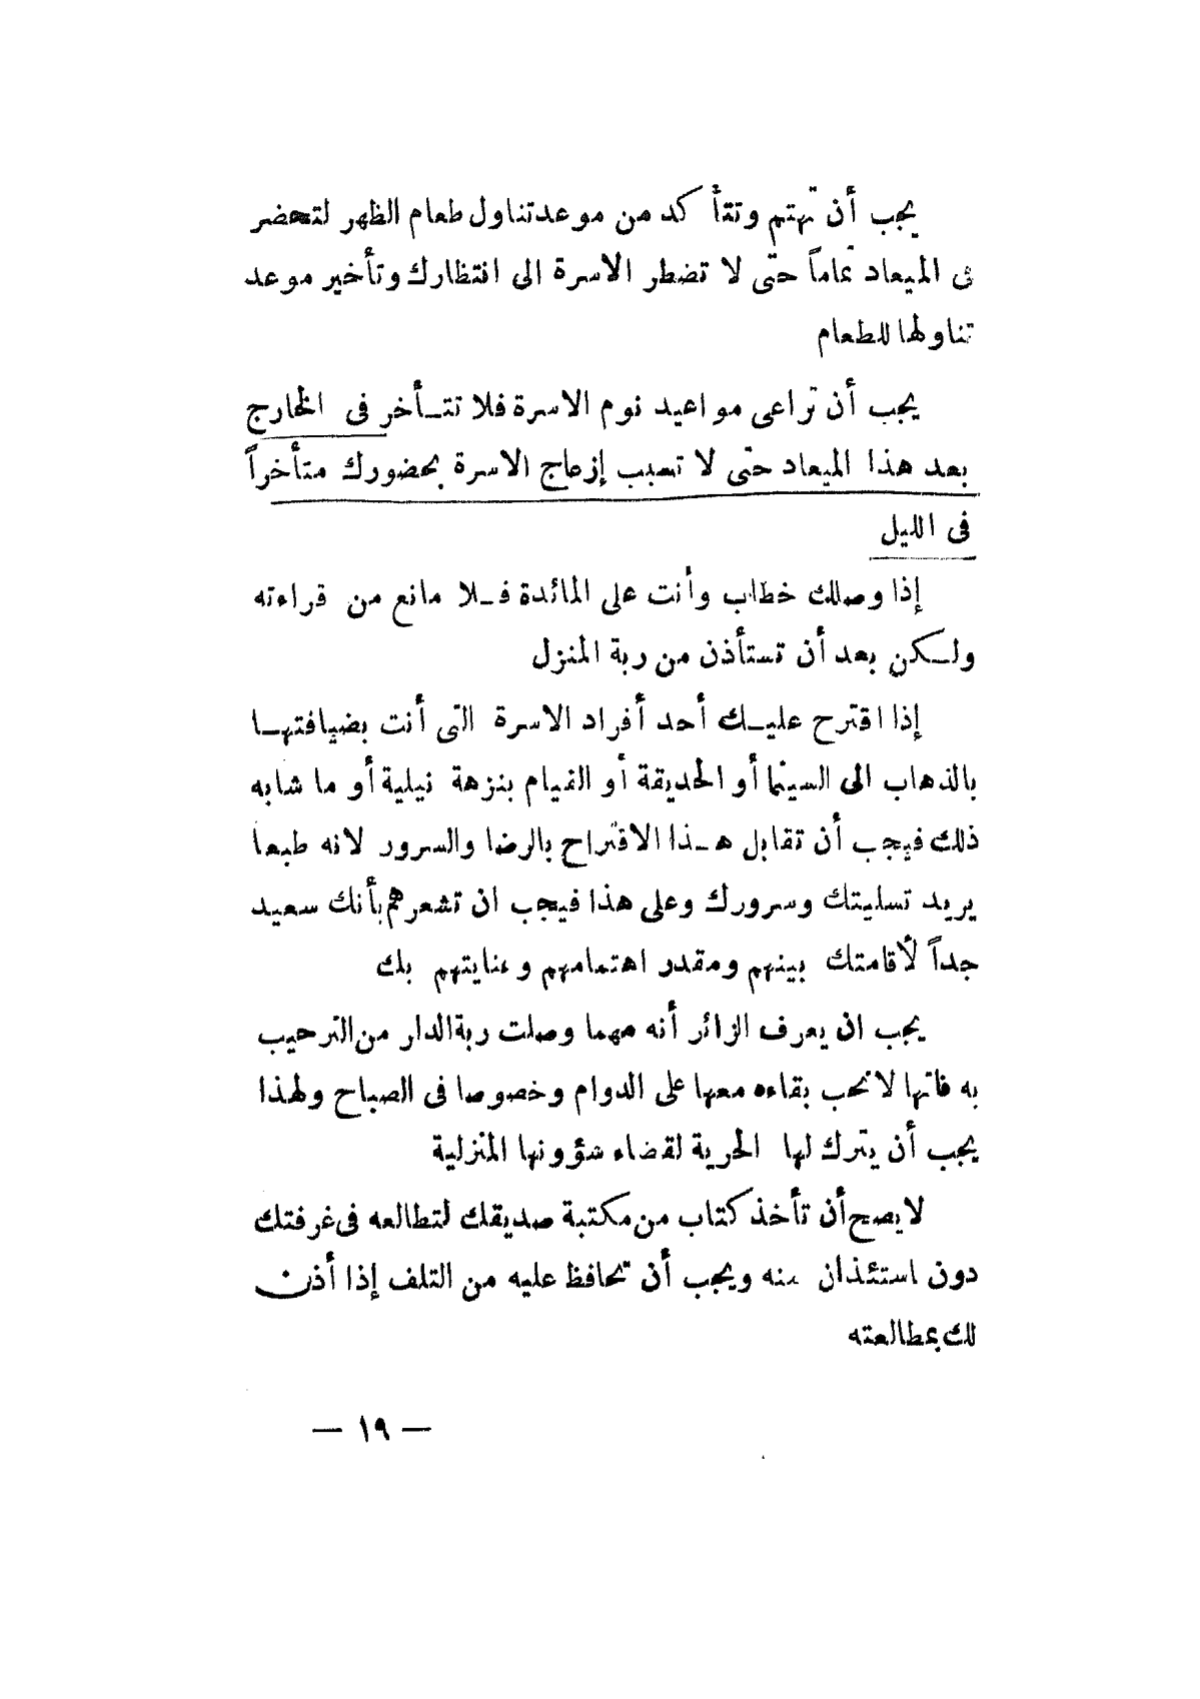 يجب أن تهتم وتتأكد من موعد تناول طعام الظهر لتحضر
فى الميعاد تماماً حتى لا تضطر الاسرة الى انتظارك وتأخير موعد
تناولها للطعام
يجب أن تراعى مواعيد نوم الاسرة فلا تتـأخر فى الخارج
بعد هذا الميعاد حتى لا تسبب إزعاج الاسرة بحضورك متأخراً
فى الليل
إذا وصلك خطاب وأنت على المائدة فـلا مانع من قراءته
ولـكن بعد أن تستأذن من ربة المنزل
إذا اقترح عليـك أحد أفراد الاسرة التى أنت بضيافتهـا
بالذهاب الى السينما أو الحديقة أو القيام بنزهة نيلية أو ما شابه
ذلك فيجب أن تقابل هـذا الاقتراح بالرضا والسرور لانه طبعا
يريد تسليتك وسرورك وعلى هذا فيجب ان تشعرهم بأنك سعيد
جداً لأقامتك بينهم ومقدر اهتمامهم وعنايتهم بك
يجب ان يعرف الزائر أنه مهما وصلت ربة الدار من الترحيب
به فانها لا تحب بقاءه معها على الدوام وخصوصا فى الصباح ولهذا
يجب أن يترك لها الحرية لقضاء شؤونها المنزلية
لا يصح أن تأخذ كتاب من مكتبة صديقك لتطالعه فى غرفتك
دون استئذان منه ويجب أن تحافظ عليه من التلف إذا أذن
لك بمطالعته
— ١٩ —